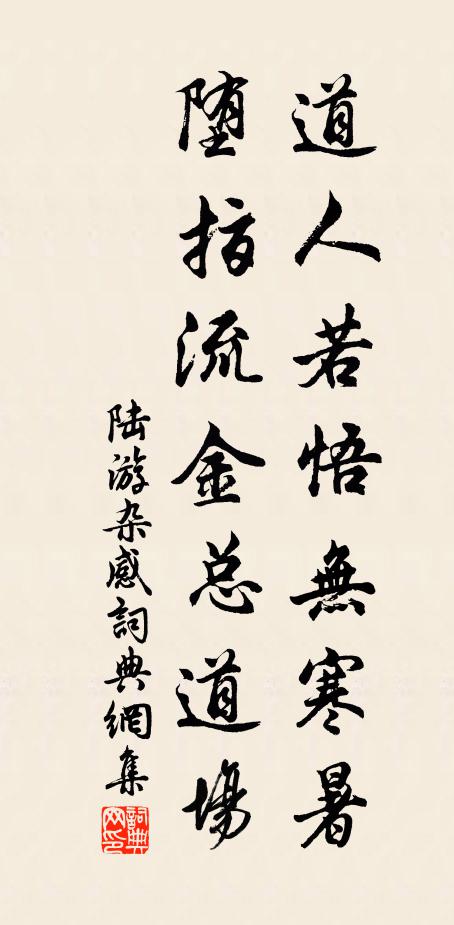 道人若悟無寒暑
堕指流金总道場
陆游杂感詞典網集
詞典网印